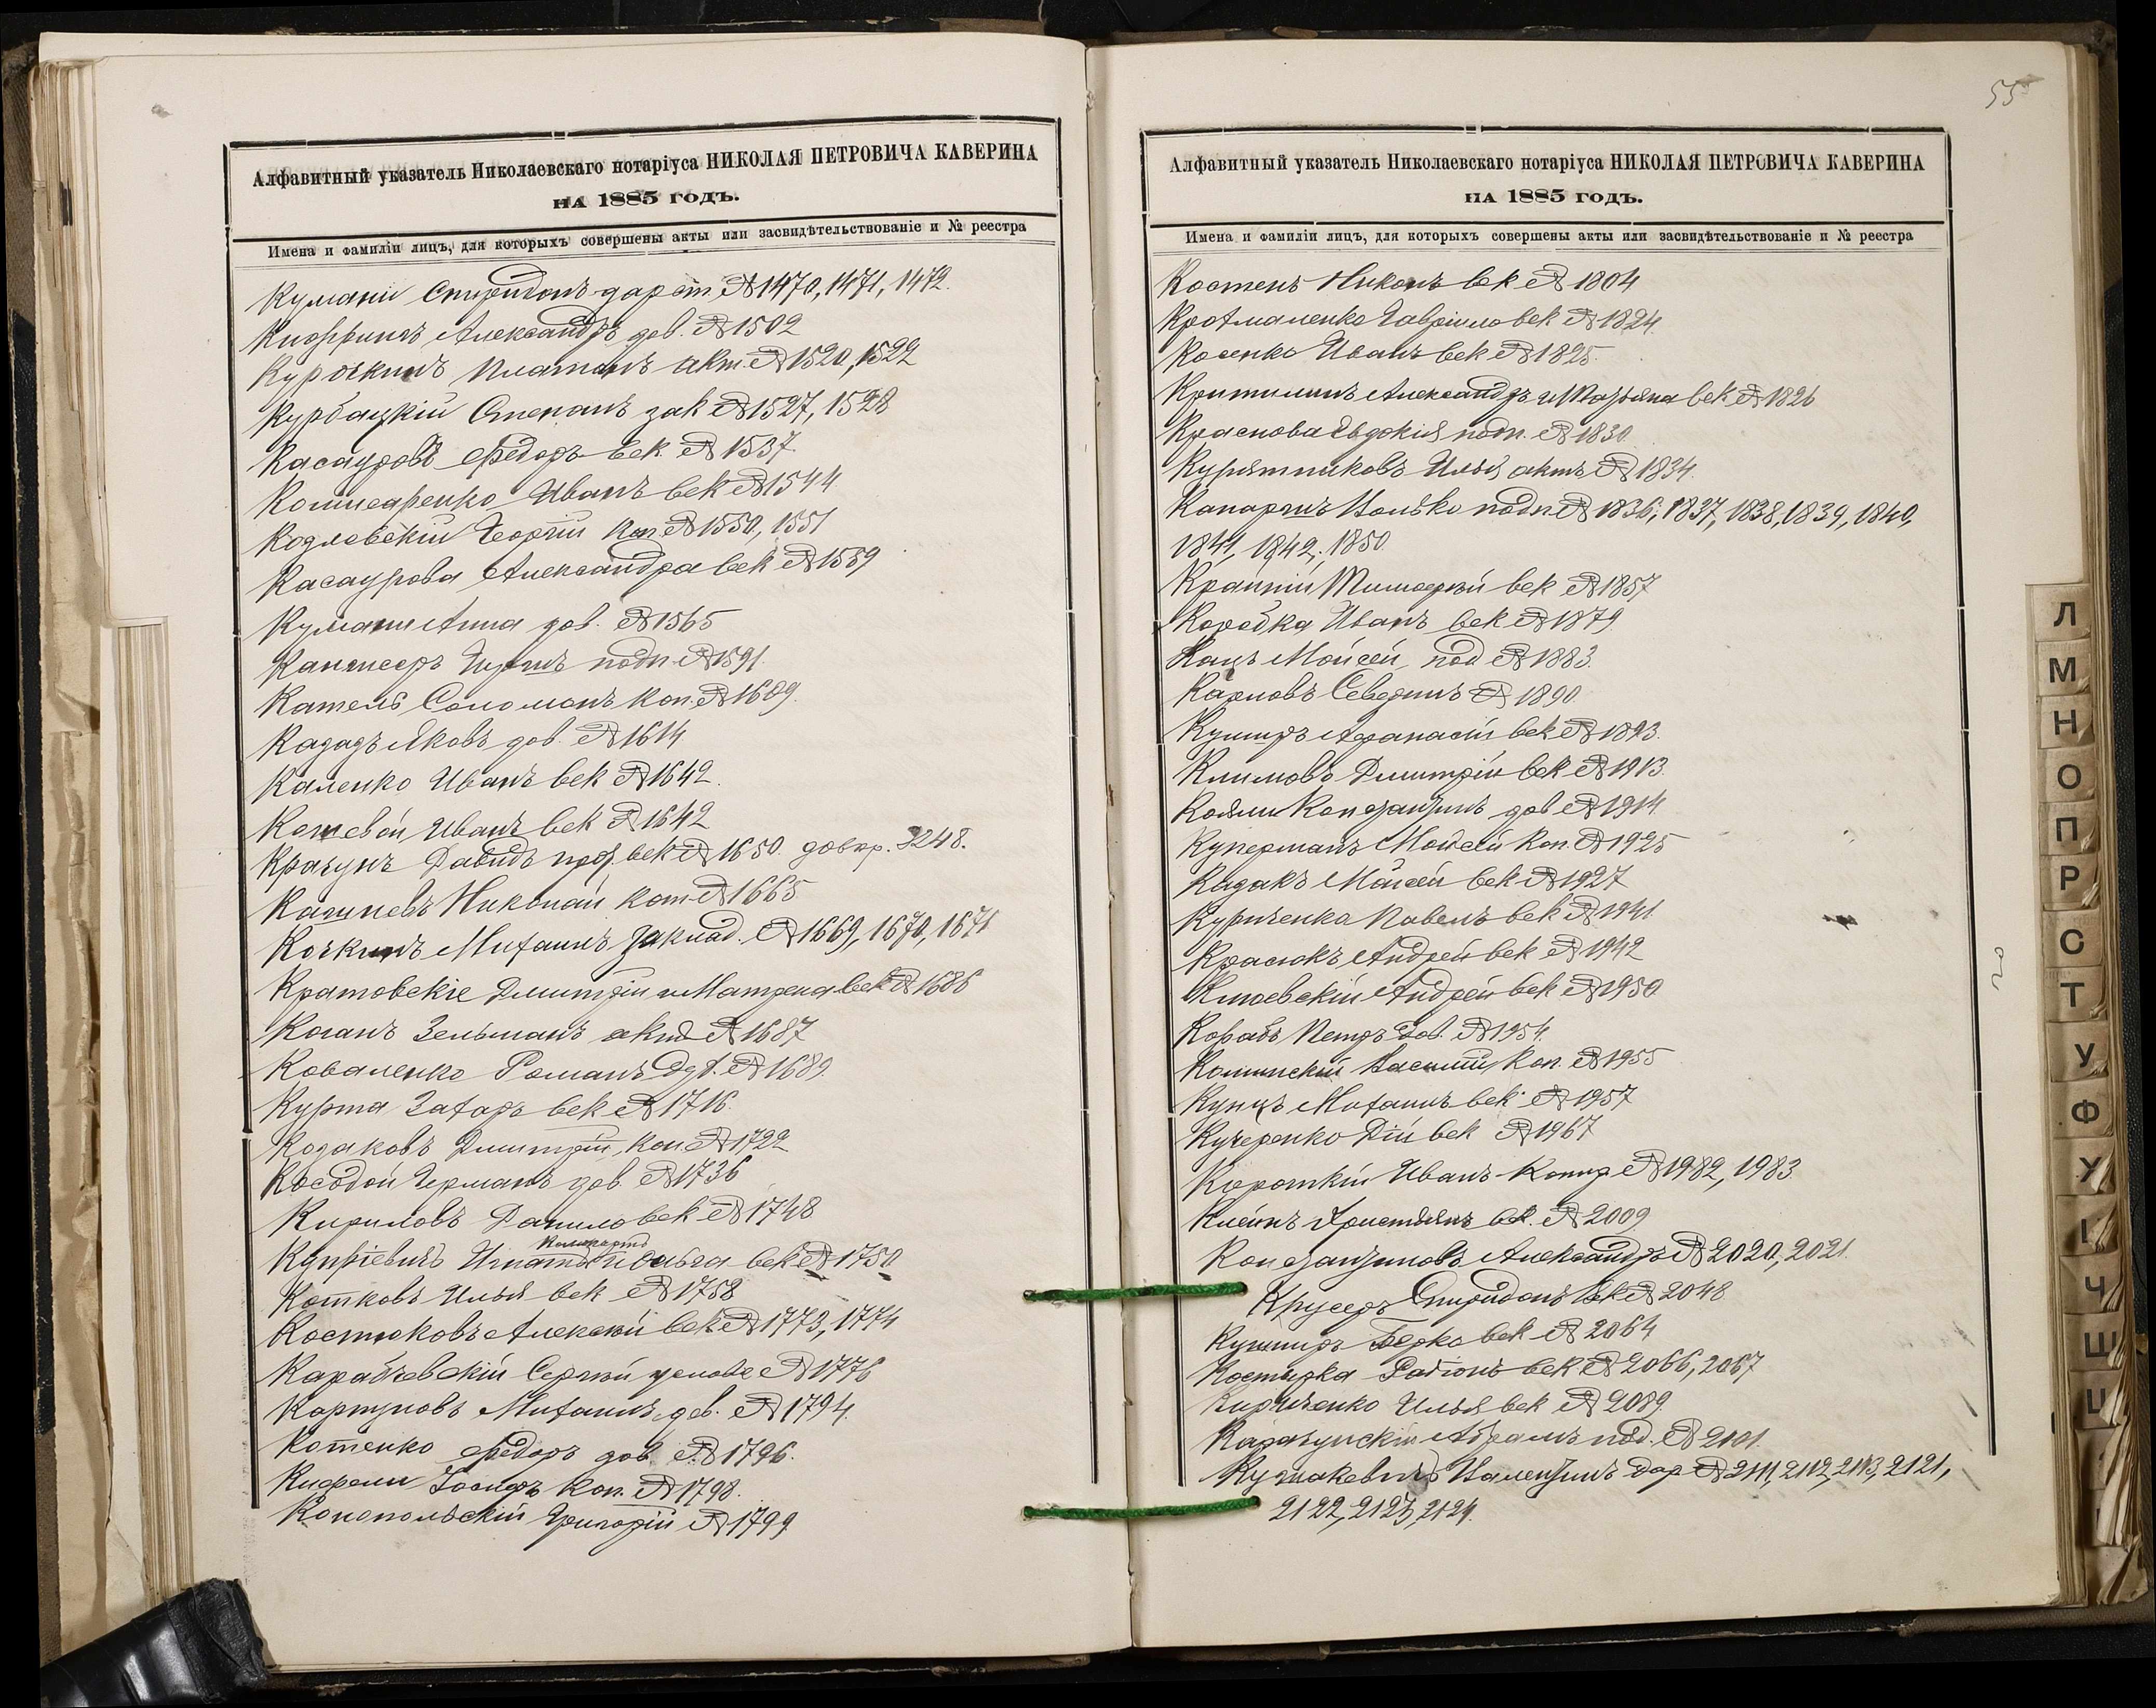 Алфавитный указатель Николаевскаго нотаріуса НИКОЛАЯ ПЕТРОВИЧА КАВЕРИНА
НА 1885 ГОДЪ.
Имена и фамиліи лицъ, для которыхъ совершены акты или засвидѣтельствованіе и № реестра
Кумани Спиридонъ дарст. № 1470, 1471, 1472.
Александръ дов. № 1502
Курочкинъ Платонъ акт. № 1520, 1522
Курбацкій Степанъ зак № 1527, 1528
Касауровъ Ѳедоръ век № 1537
Комисаренко Иванъ век № 1544
Козловскій Георгій Коп. № 1550, 1551
Касаурова Александра век № 1559
Кумани Анна дов. № 1565
подп. № 1591.
Кашель Соломонъ коп. № 1609.
Кададъ Яковъ дов. № 1614
Каленко Иванъ век № 1642.
Кошевой Иванъ век № 1642
Крачунъ Давидъ век № 1650. 3248.
Николай № 1665
Кочкинъ Михаилъ заклад. № 1669, 1670, 1671
Кратовскіе Дмитрій и Матрена век № 1686
Коганъ Зельманъ акт № 1687
Коваленко Романъ № 1689.
Курта Захаръ век № 1716.
Козаковъ Дмитрій, Коп. № 1722
Косодой Германъ дов. № 1736
Кириловъ Данило век № 1748
Купріевичъ Игнатъ и Ольга век № 1750
Котковъ Илья век № 1758
Костюковъ Алексѣй век № 1773, 1774
Карабчевскій Сергѣй № 1776
Картуновъ Михаилъ дов. № 1794.
Котенко Ѳедоръ дов. № 1796.
Іосифъ Коп. № 1798.
Конопольскій Григорій № 1799
55
Алфавитный указатель Николаевскаго нотаріуса НИКОЛАЯ ПЕТРОВИЧА КАВЕРИНА
НА 1885 ГОДЪ.
Имена и фамиліи лицъ, для которыхъ совершены акты или засвидѣтельствованіе и № реестра
Костенъ Никонъ век № 1804
Гаврило век № 1824.
Косенко Иванъ век № 1825.
Александръ и Марьяна век № 1826
Краснова Евдокія подп. № 1830.
Курятниковъ Илья актъ № 1834.
подп. № 1836, 1837, 1838, 1839, 1840,
1841, 1842, 1850.
Крайній Тимофѣй век № 1857
Коробка Иванъ век № 1879.
Кацъ Мойсей под № 1883.
Карповъ Северинъ № 1890.
Кушнръ Афанасій век № 1893.
Климовъ Дмитрій век № 1913.
Констанцинъ дов № 1914.
Куперманъ Мойсей Коп. № 1925
Кадакъ Мойсей век № 1927
Куриченка Павелъ век № 1941.
Красюкъ Андрей век № 1942
Андрей век № 1950
Корабъ Петръ Дов. № 1954.
Василій Коп. № 1955
Купцъ Михаилъ век № 1957
Кучеренко Дій век № 1967
Короткій Иванъ № 1982, 1983.
Клейнъ Христіянъ век. № 2009
Констанциновъ Александръ № 2020, 2021.
Крусеръ Спиридонъ век № 2048
Кушниръ Берко век № 2064
Костырка Родіонъ век № 2066, 2067
Кириченко Илья век № 2089.
Карачунскій Абрамъ под. № 2101.
Дар № 2111, 2112, 2113, 2121,
2122, 2123, 2124.
Л
М
Н
О
П
Р
С
Т
У
Ф
Х
Ц
Ч
Ш
Щ